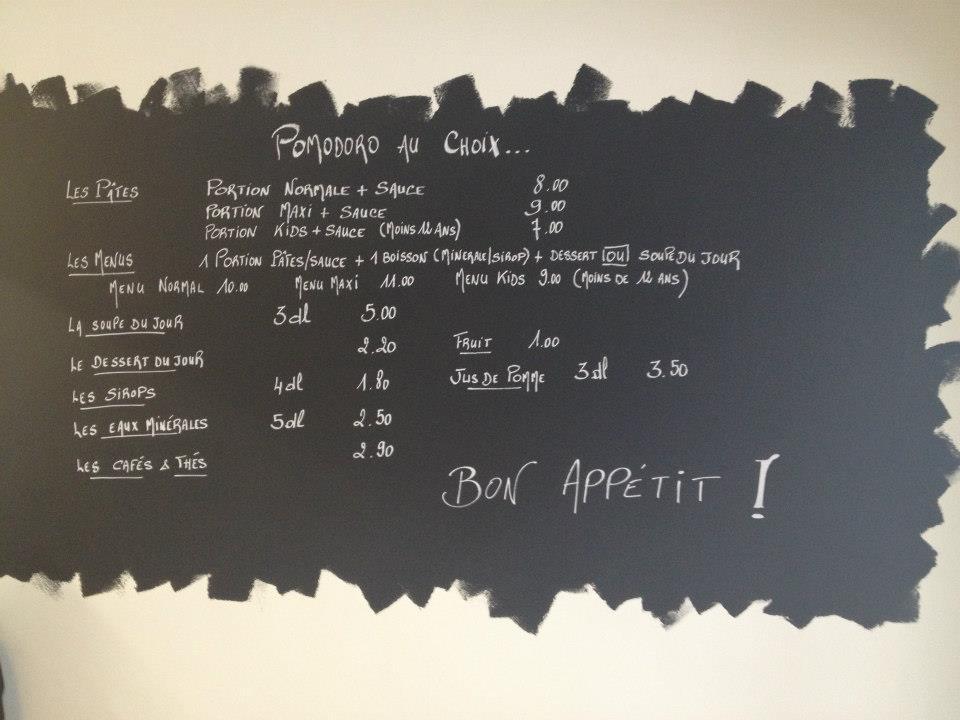 POMODORO AU CHOIX...
LES PÂTES PORTION NORMALE + SAUCE 8.00
PORTION MAXI + SAUCE 9.00
PORTION KIDS + SAUCE (MOINS 12 ANS) 7.00
LES MENUS 1 PORTION PÂTES/SAUCE + 1 BOISSON (MINERALE/SIROP) + DESSERT OU SOUPE DU JOUR
MENU NORMAL 10.00 MENU MAXI 11.00 MENU KIDS 9.00 (MOINS DE 12 ANS)
LA SOUPE DU JOUR 3dl 5.00
LE DESSERT DU JOUR 2.20 FRUIT 1.00
LES SIROPS 4dl 1.80 JUS DE POMME 3dl 3.50
LES EAUX MINÉRALES 5dl 2.50
LES CAFÉS & THÉS 2.90
BON APPÉTIT !